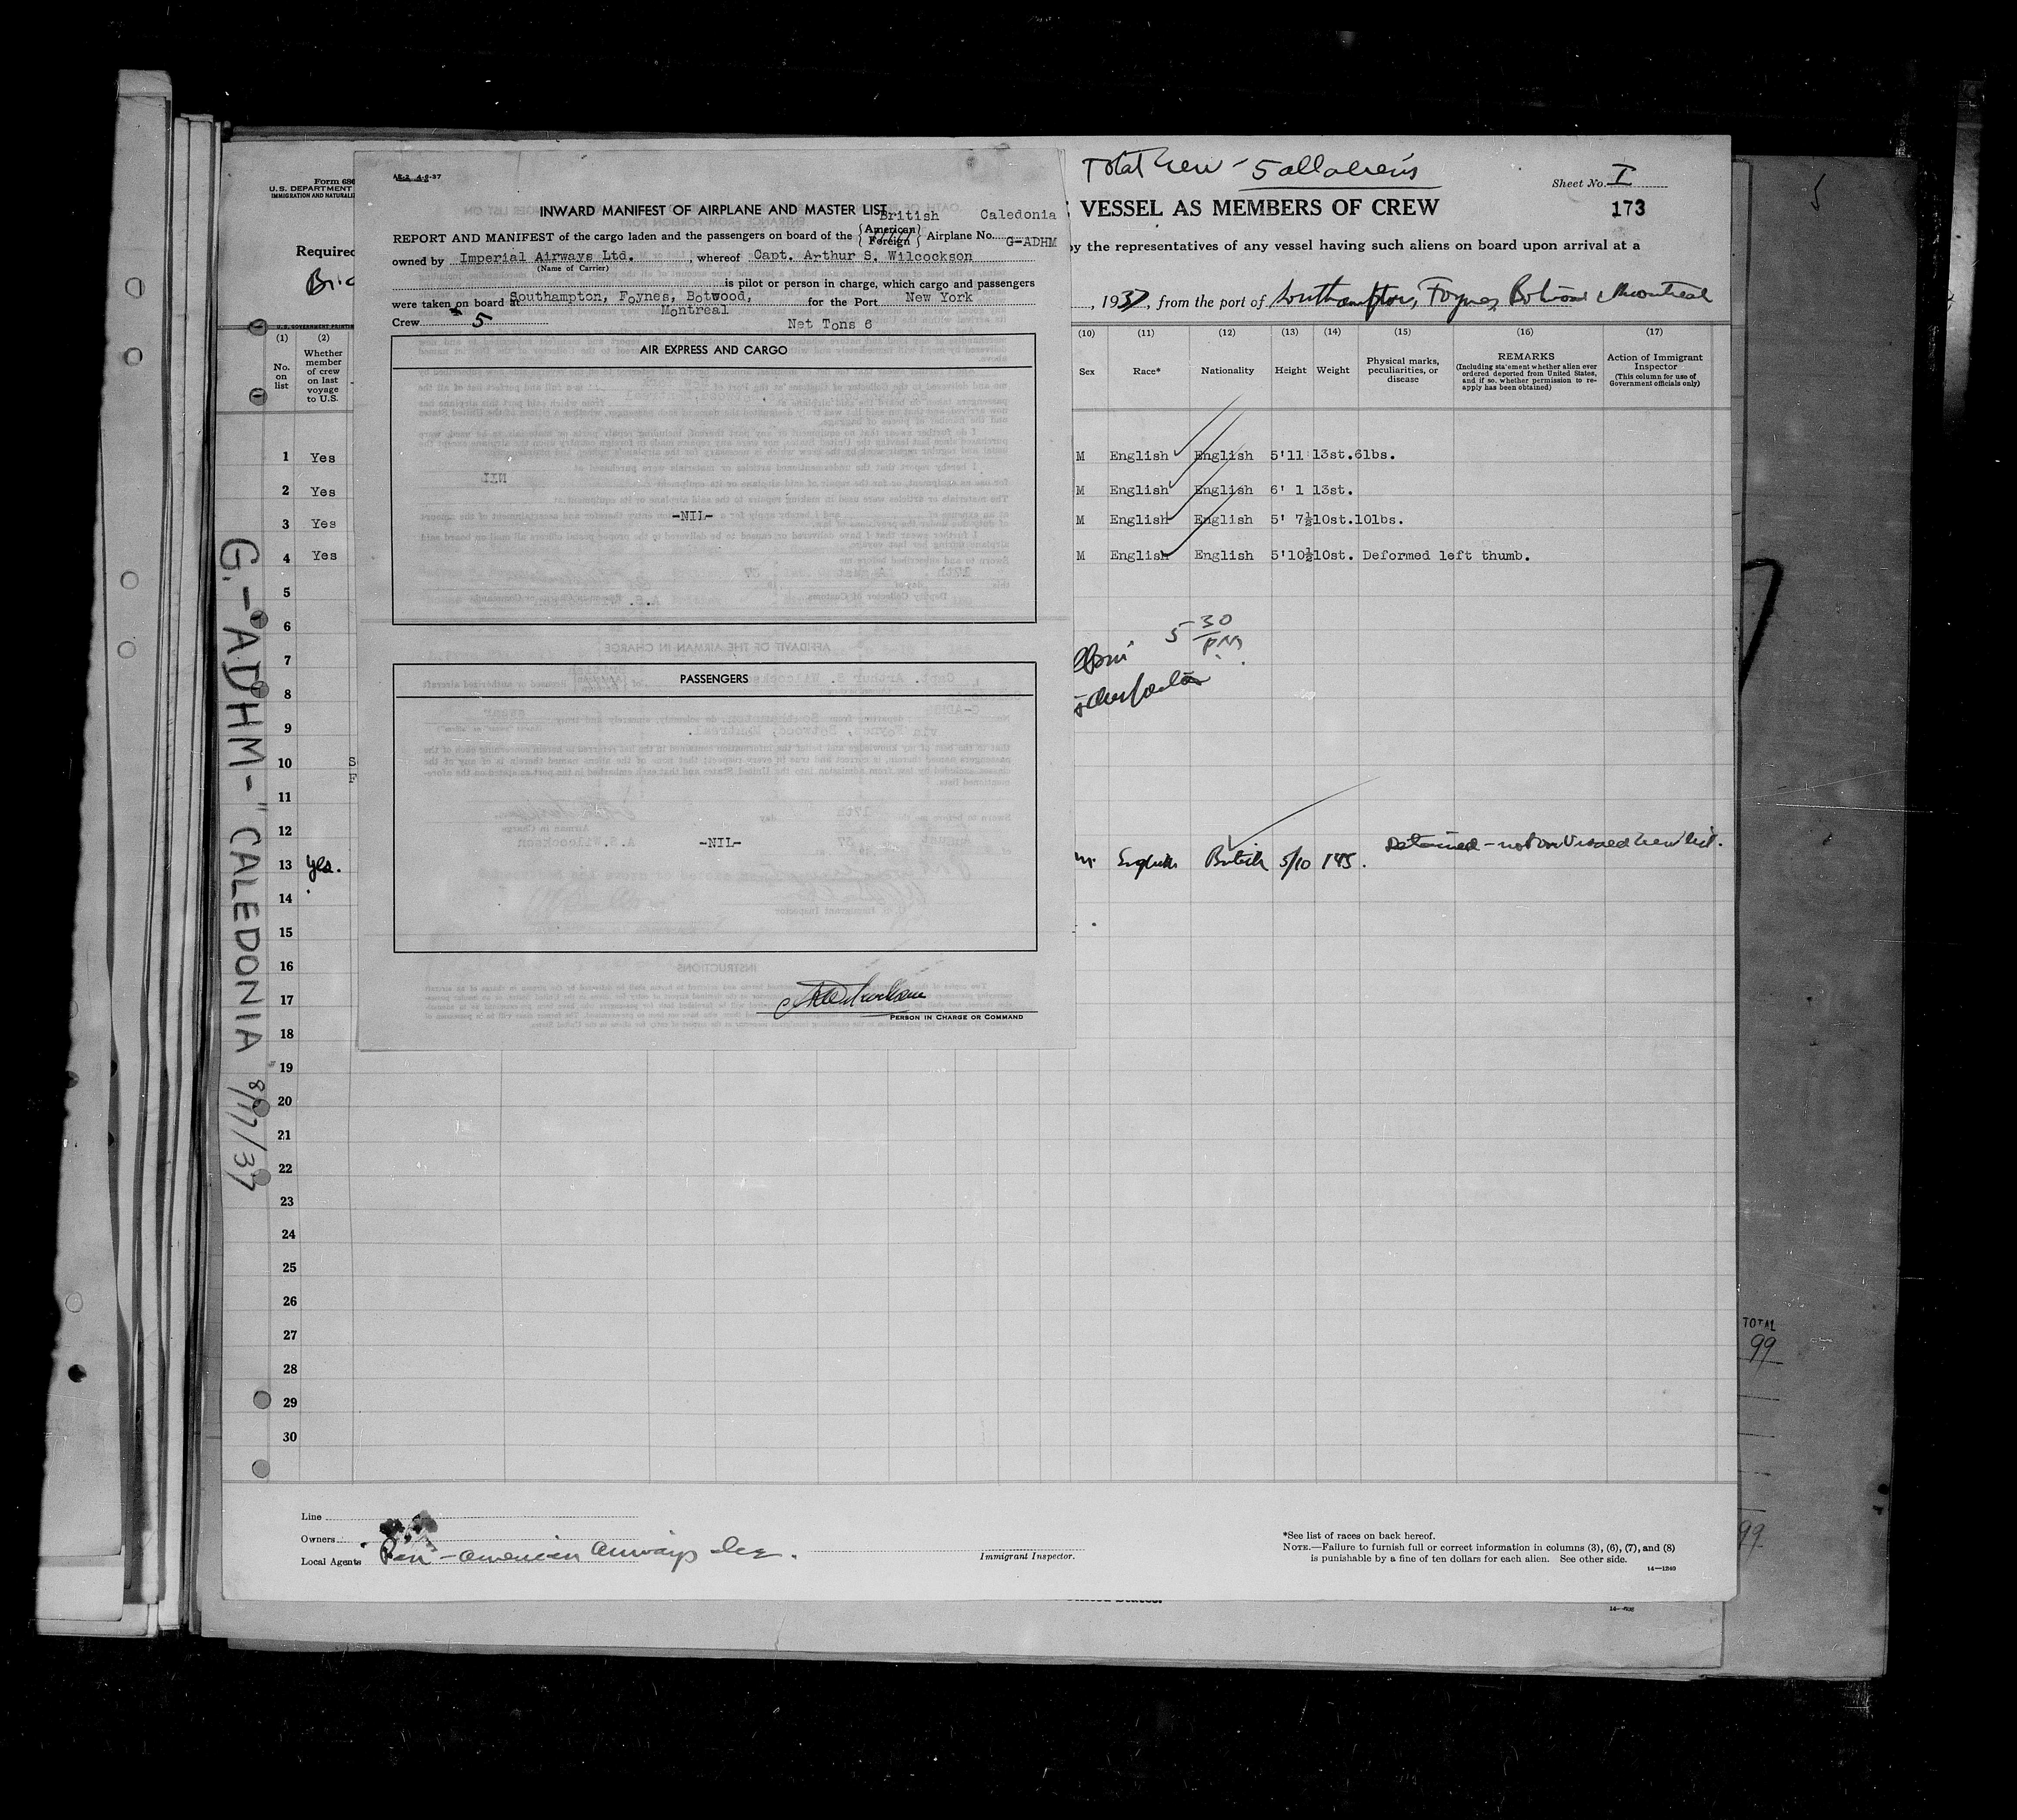 Total Crew - 5 all aliens
Sheet No. I
Form 680
U.S. DEPARTMENT
IMMIGRATION AND NATURALIZ
VESSEL AS MEMBERS OF CREW
173
Required
by the representatives of any vessel having such aliens on board upon arrival at a
, 1937, from the port of Southampton, Foynes, Botwood, Montreal
U.S. GOVERNMENT PRINTIN
AE-3 4-6-37
INWARD MANIFEST OF AIRPLANE AND MASTER LIST
British Caledonia
REPORT AND MANIFEST of the cargo laden and the passengers on board of the {American Foreign} Airplane No. G-ADHM
owned by Imperial Airways Ltd. ; whereof Capt. Arthur S. Wilcockson
(Name of Carrier)
is pilot or person in charge, which cargo and passengers
were taken on board at Southampton, Foynes, Botwood, for the Port New York
Montreal
Crew 5 Net Tons 6
AIR EXPRESS AND CARGO
-NIL-
PASSENGERS
-NIL-
PERSON IN CHARGE OR COMMAND
(1) (2) (10) (11) (12) (13) (14) (15) (16) (17)
No. on list
Whether member of crew on last voyage to U.S.
Sex
Race*
Nationality
Height
Weight
Physical marks, peculiarities, or disease
REMARKS
(Including statement whether alien ever ordered deported from United States, and if so, whether permission to re-apply has been obtained)
Action of Immigrant Inspector
(This column for use of Government officials only)
1 Yes M English English 5'11 13st.6lbs.
2 Yes M English English 6' 1 13st.
3 Yes M English English 5' 7½ 10st.10lbs.
4 Yes M English English 5'10½ 10st. Deformed left thumb.
5
6
5 30 PM
7
8
9
10 S
F
11
12
13 Yes. M. English British 5/10 145. Detained - not on Visaed Crew list.
14
15
16
17
18
19
20
21
22
23
24
25
26
27
28
29
30
G-ADHM - "CALEDONIA 8/17/37
Line
Owners
Local Agents Pan-American Airways Inc.
Immigrant Inspector.
*See list of races on back hereof.
NOTE.—Failure to furnish full or correct information in columns (3), (6), (7), and (8)
is punishable by a fine of ten dollars for each alien. See other side.
14—1240
TOTAL
99
99